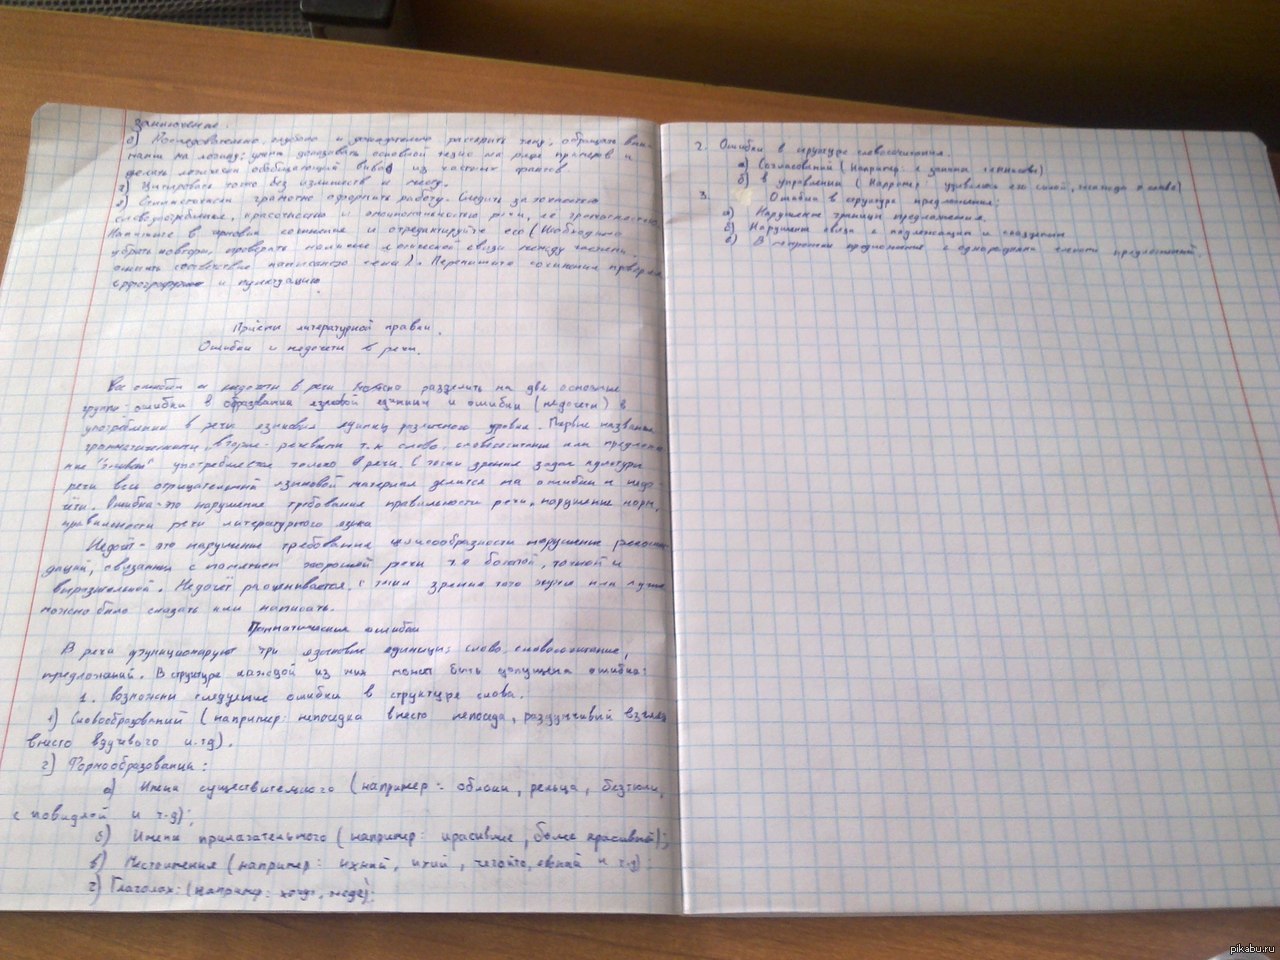 Заключение.
б) Последовательно, глубоко и доказательно раскрыть тему, обращая вни-
мание на логику; уметь доказывать основной тезис на ряде примеров и
делать логически обобщающий вывод из частных фактов.
г) Цитировать точно без излишеств к месту.
грамотно оформить работу. Следить за точностью
словоупотребления, красочностью и речи, ее грамотностью
Напишите в черновик сочинение и отредактируйте его (Необходимо
убрать повторы, проверить наличие логической связи между частями,
написанного тема). Перепишите сочинение проверяя
орфографию и пунктуацию
Приёмы литературной правки.
Ошибки и недочеты в речи.
Все ошибки и недочеты в речи можно разделить на две основные
группы: ошибки в образовании языковой единицы и ошибки (недочеты) в
употреблении в речи языковых единиц различного уровня. Первые названы
грамматическими, вторые - речевыми т.к слово, словосочетание или предложе-
ние употребляется только в речи. С точки зрения задач культуры
речи весь отрицательный языковой материал делится на ошибки и недо-
чёты. Ошибка - это нарушение требования правильности речи, нарушение норм,
правильности речи литературного языка
Недочёт - это нарушение требования целесообразности нарушение рекомен-
даций, связанных с понятием хорошей речи т.е богатой, точной и
выразительной. Недочёт расценивается с точки зрения того хуже или лучше
можно было сказать или написать.
Грамматические ошибки
В речи функционируют три языковые единицы: слово, словосочетание,
предложений. В структуре каждой из них может быть допущена ошибка:
1. Возможны следующие ошибки в структуре слова.
1) Словообразований (например: непоседка вместо непоседа, раздумчивый взгляд
вместо вдумчивого и.тд).
2) Формообразовании:
а) Имени существительного (например: облаки, рельца, безтюли,
с повидлой и т.д);
б) Имени прилагательного (например: красивше, более красивый);
в) Местоимения (например: ихний, ихий, евоный и т.д);
г) Глаголах: (например:
2. Ошибки в структуре словосочетания.
а) Согласований (Например: к
б) в управлении (Например: удивляюсь его силой, жажда к славе)
3. Ошибки в структуре предложения:
а) Нарушение границы предложения.
б) Нарушение связи с подлежащим и сказуемым
в) В построении предложение с однородными членами предложений.